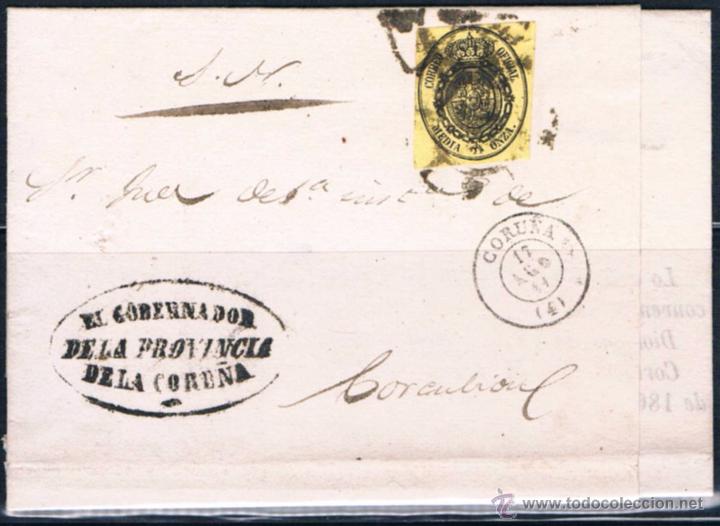 S. N.
CORREO OFICIAL
MEDIA ONZA.
Sr. Juez de 1ª inst.ª de
CORUÑA
17
AGO
(4)
EL GOBERNADOR
DE LA PROVINCIA
DE LA CORUÑA
Corcubion
Lo
Dio
Cor
de 186
todocoleccion
www.todocoleccion.net